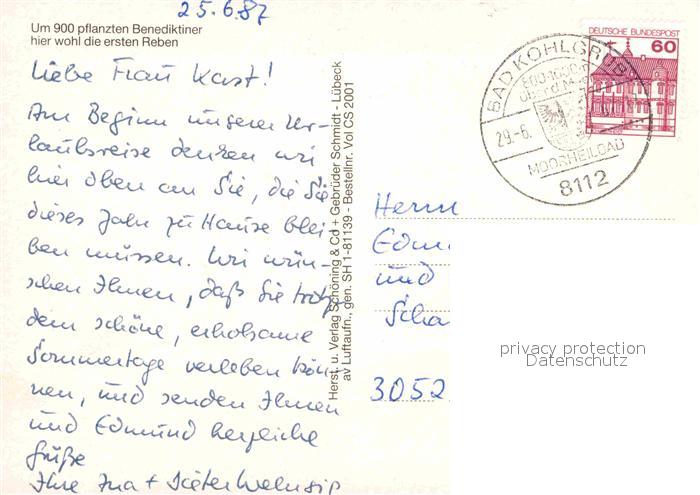 25.6.87
Um 900 pflanzten Benediktiner
hier wohl die ersten Reben
Liebe Frau Karst!
Am Beginn unserer Ur-
laubsreise denken wir
hier oben an Sie, die Sie
dieses Jahr zu Hause blei-
ben müssen. Wir wün-
schen Ihnen, daß Sie trotz
dem schöne, erholsame
Sommertage verleben kön-
nen, und senden Ihnen
und Edmund herzliche
Grüße
Ihre Ina + Dieter
Herst. u. Verlag Schöning & Co + Gebrüder Schmidt - Lübeck
av Luftaufn., gen. SH 1-81139 - Bestellnr. Vol CS 2001
DEUTSCHE BUNDESPOST
60
BAD KOHLGRUB
29.-6.
MOORHEILBAD
8112
Herrn
Edm
und
Scha
3052
privacy protection
Datenschutz